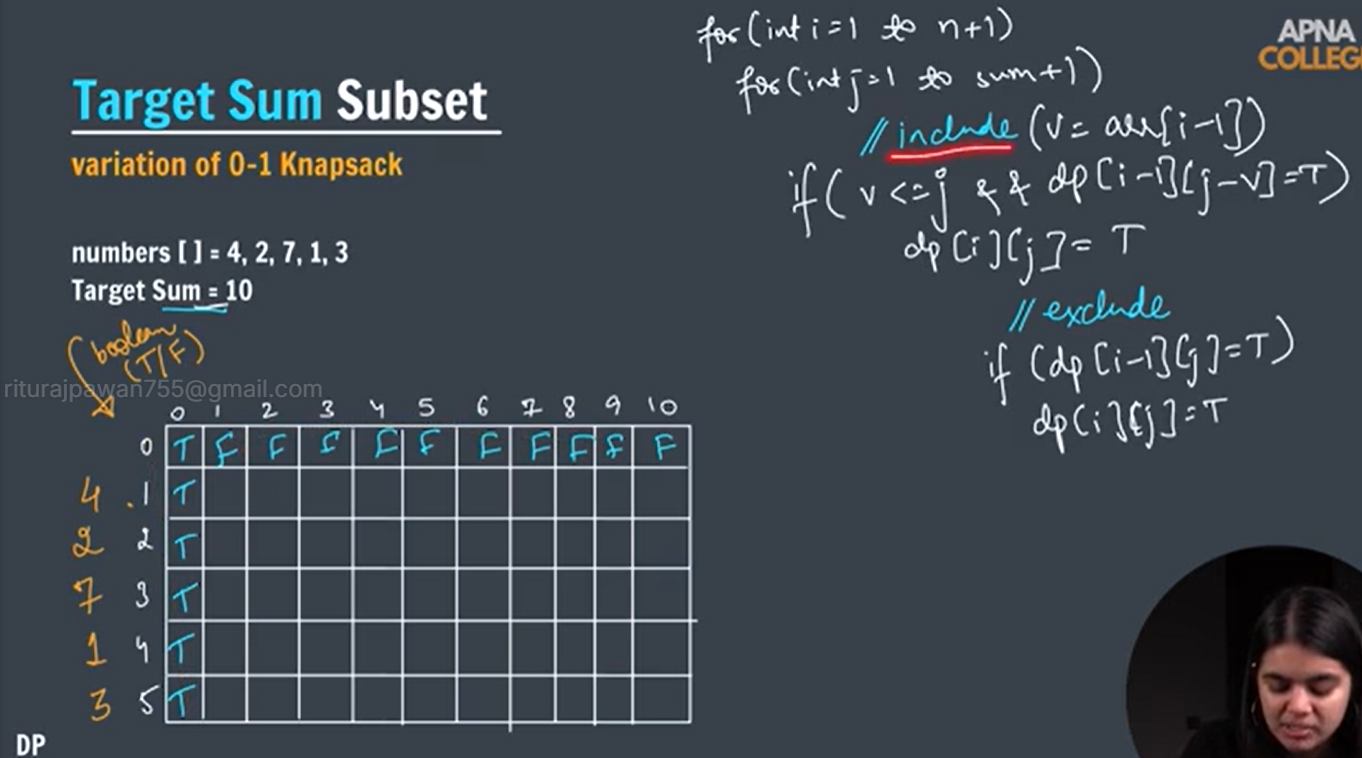 APNA
COLLEG
Target Sum Subset
variation of 0-1 Knapsack
numbers [ ] = 4, 2, 7, 1, 3
Target Sum = 10
boolean
(T/F)
riturajpawan755@gmail.com
0 1 2 3 4 5 6 7 8 9 10
0 T F F F F F F F F F F
4 .1 T
2 2 T
7 3 T
1 4 T
3 5 T
DP
for(int i=1 to n+1)
for(int j=1 to sum+1)
// include (v = arr[i-1])
if( v <= j && dp[i-1][j-v]=T)
dp[i][j]= T
// exclude
if (dp[i-1][j]=T)
dp[i][j]=T